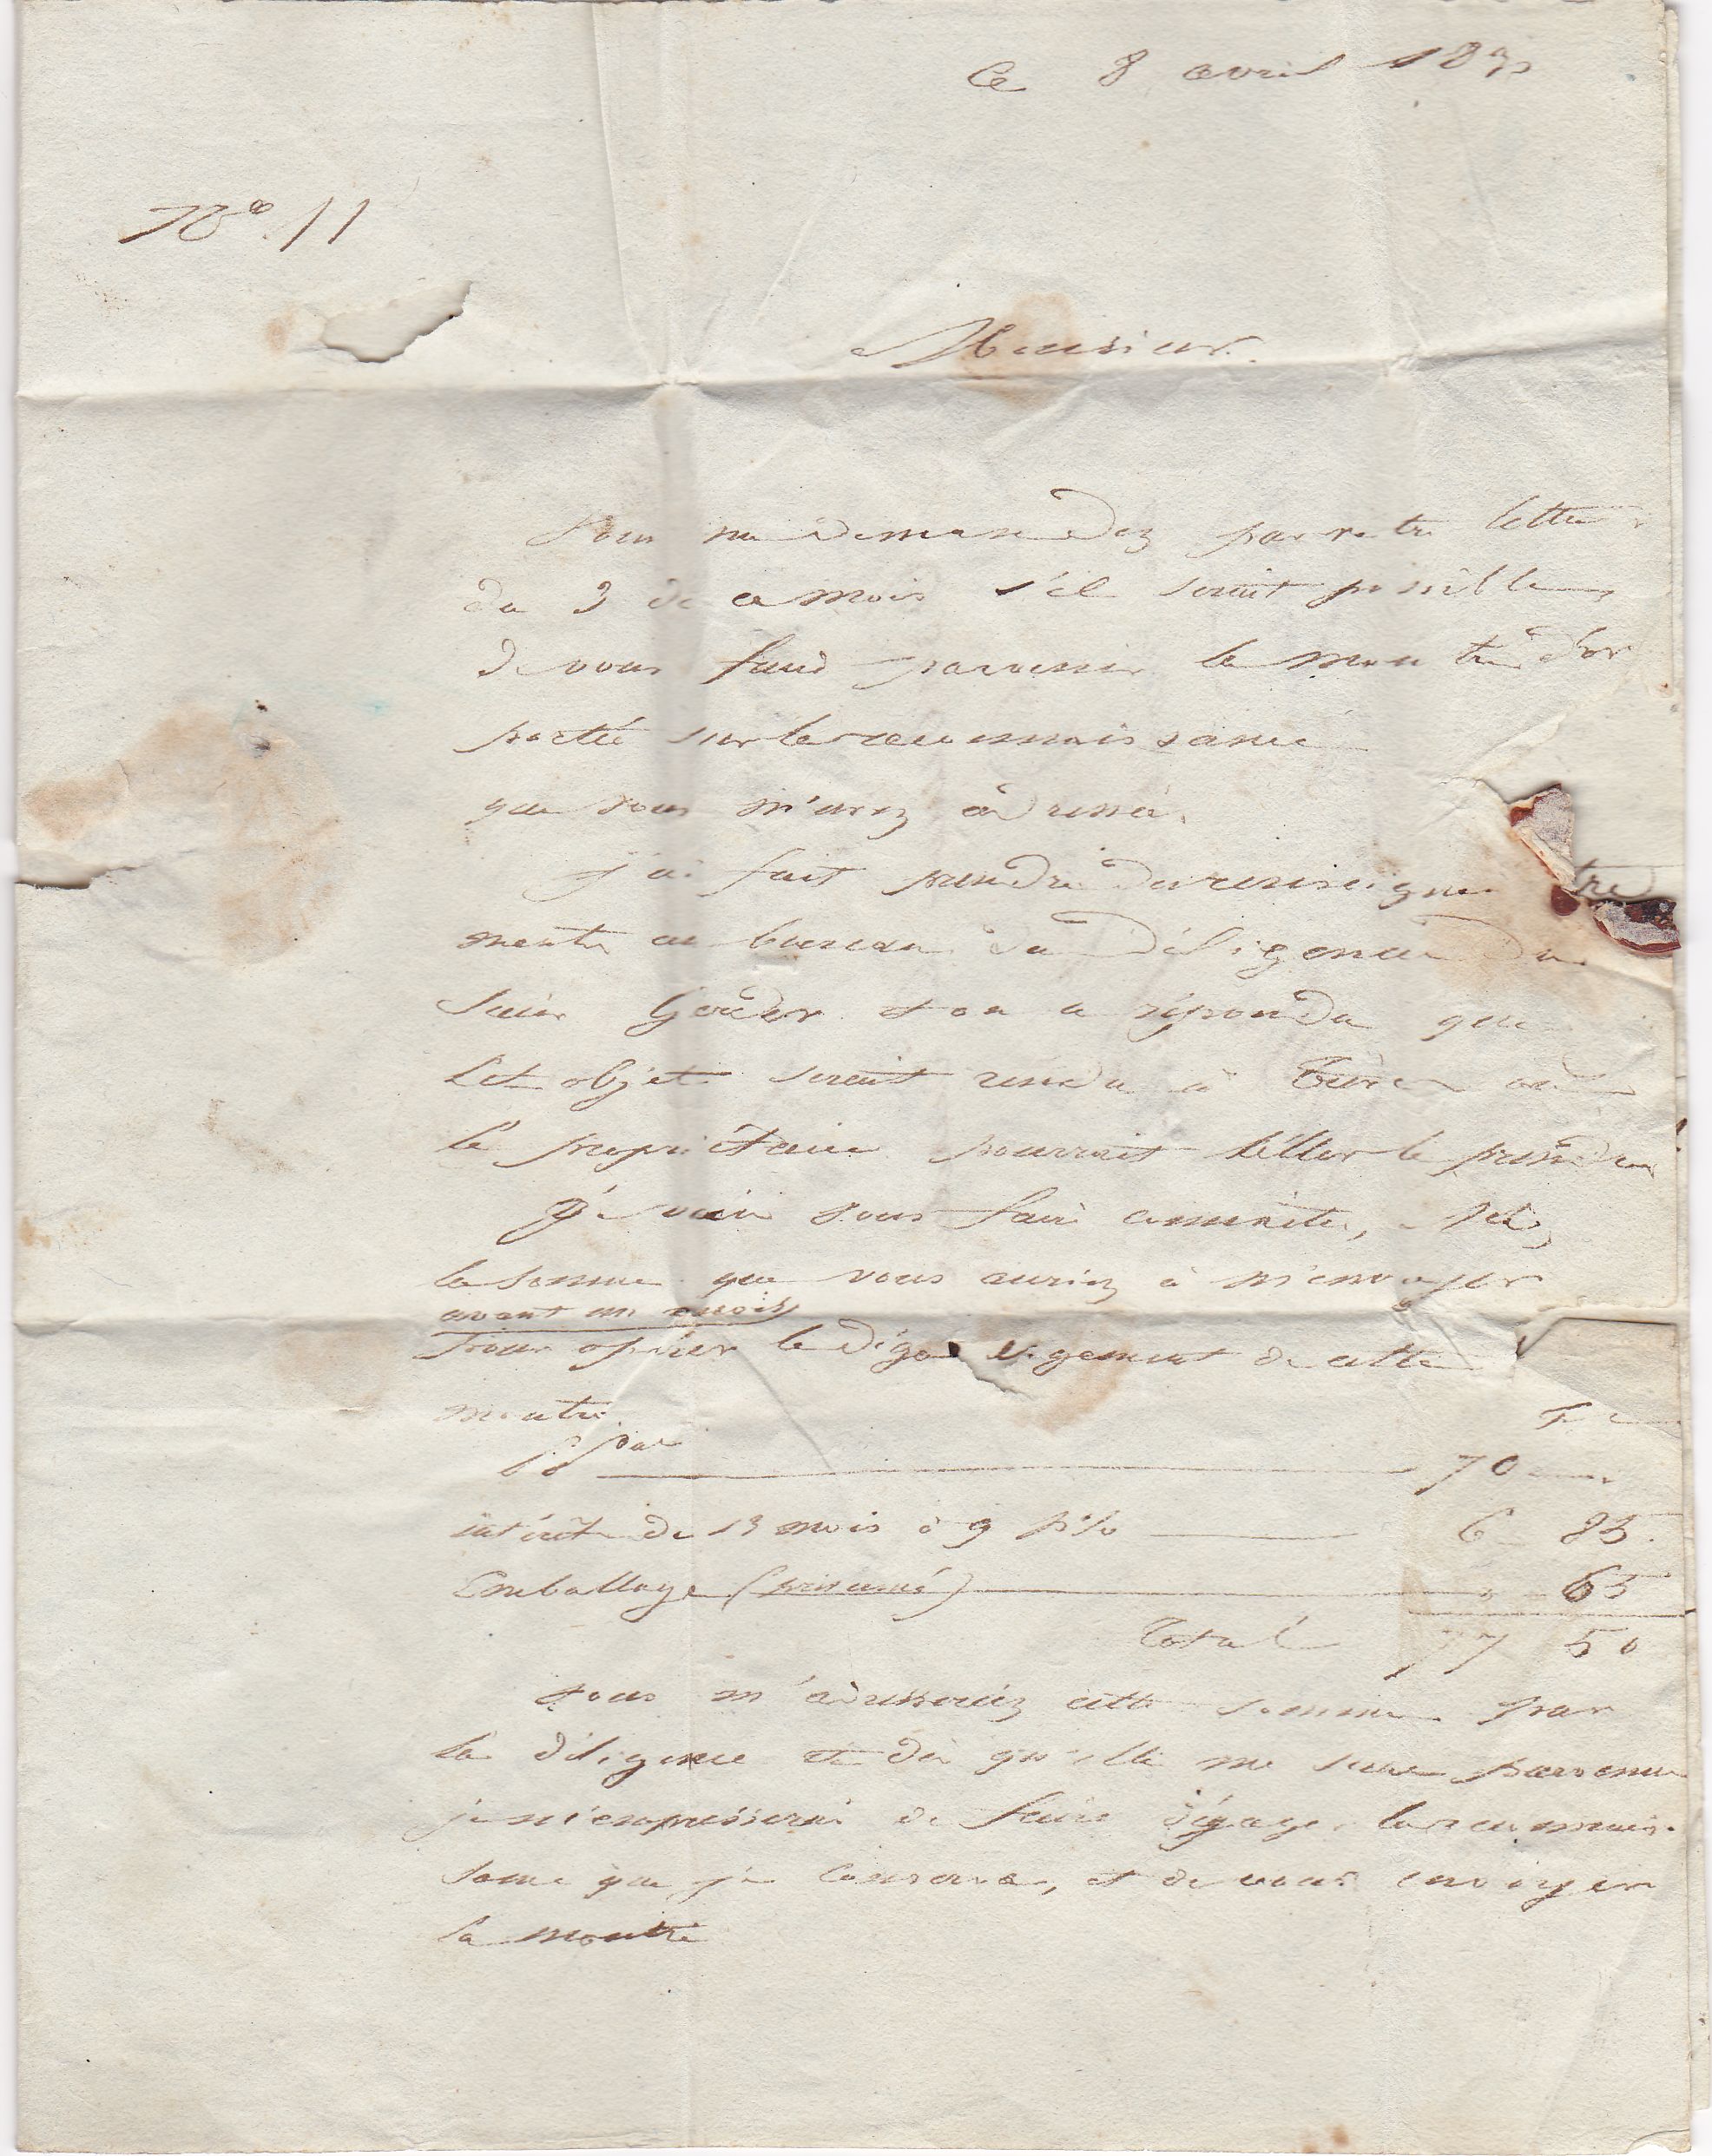 Ce 8 avril 183
N° 11
Monsieur
Vous me demandez par votre lettre
du 3 de ce mois s'il serait possible
de vous faire parvenir la montre d'or
portée sur la reconnaissance
que vous m'avez adressée.
J'ai fait prendre des renseigne
ments au bureau de diligence du
Sieur et on a répondu que
cet objet serait rendu à où
le propriétaire pourrait l'aller le prendre
Je vais vous faire connaître,
la somme que vous auriez à m'envoyer
avant un mois
Pour opérer le dégagement de cette
montre.
F c
70 —
intérêt de 13 mois à 9 p % 6 85
Emballage (présumé) " 65
Total 77 50
Vous m'adresseriez cette somme par
la diligence et dès qu'elle me sera parvenue
je m'empresserai de faire dégager la reconnais
sance que je conserve, et de vous envoyer
la montre